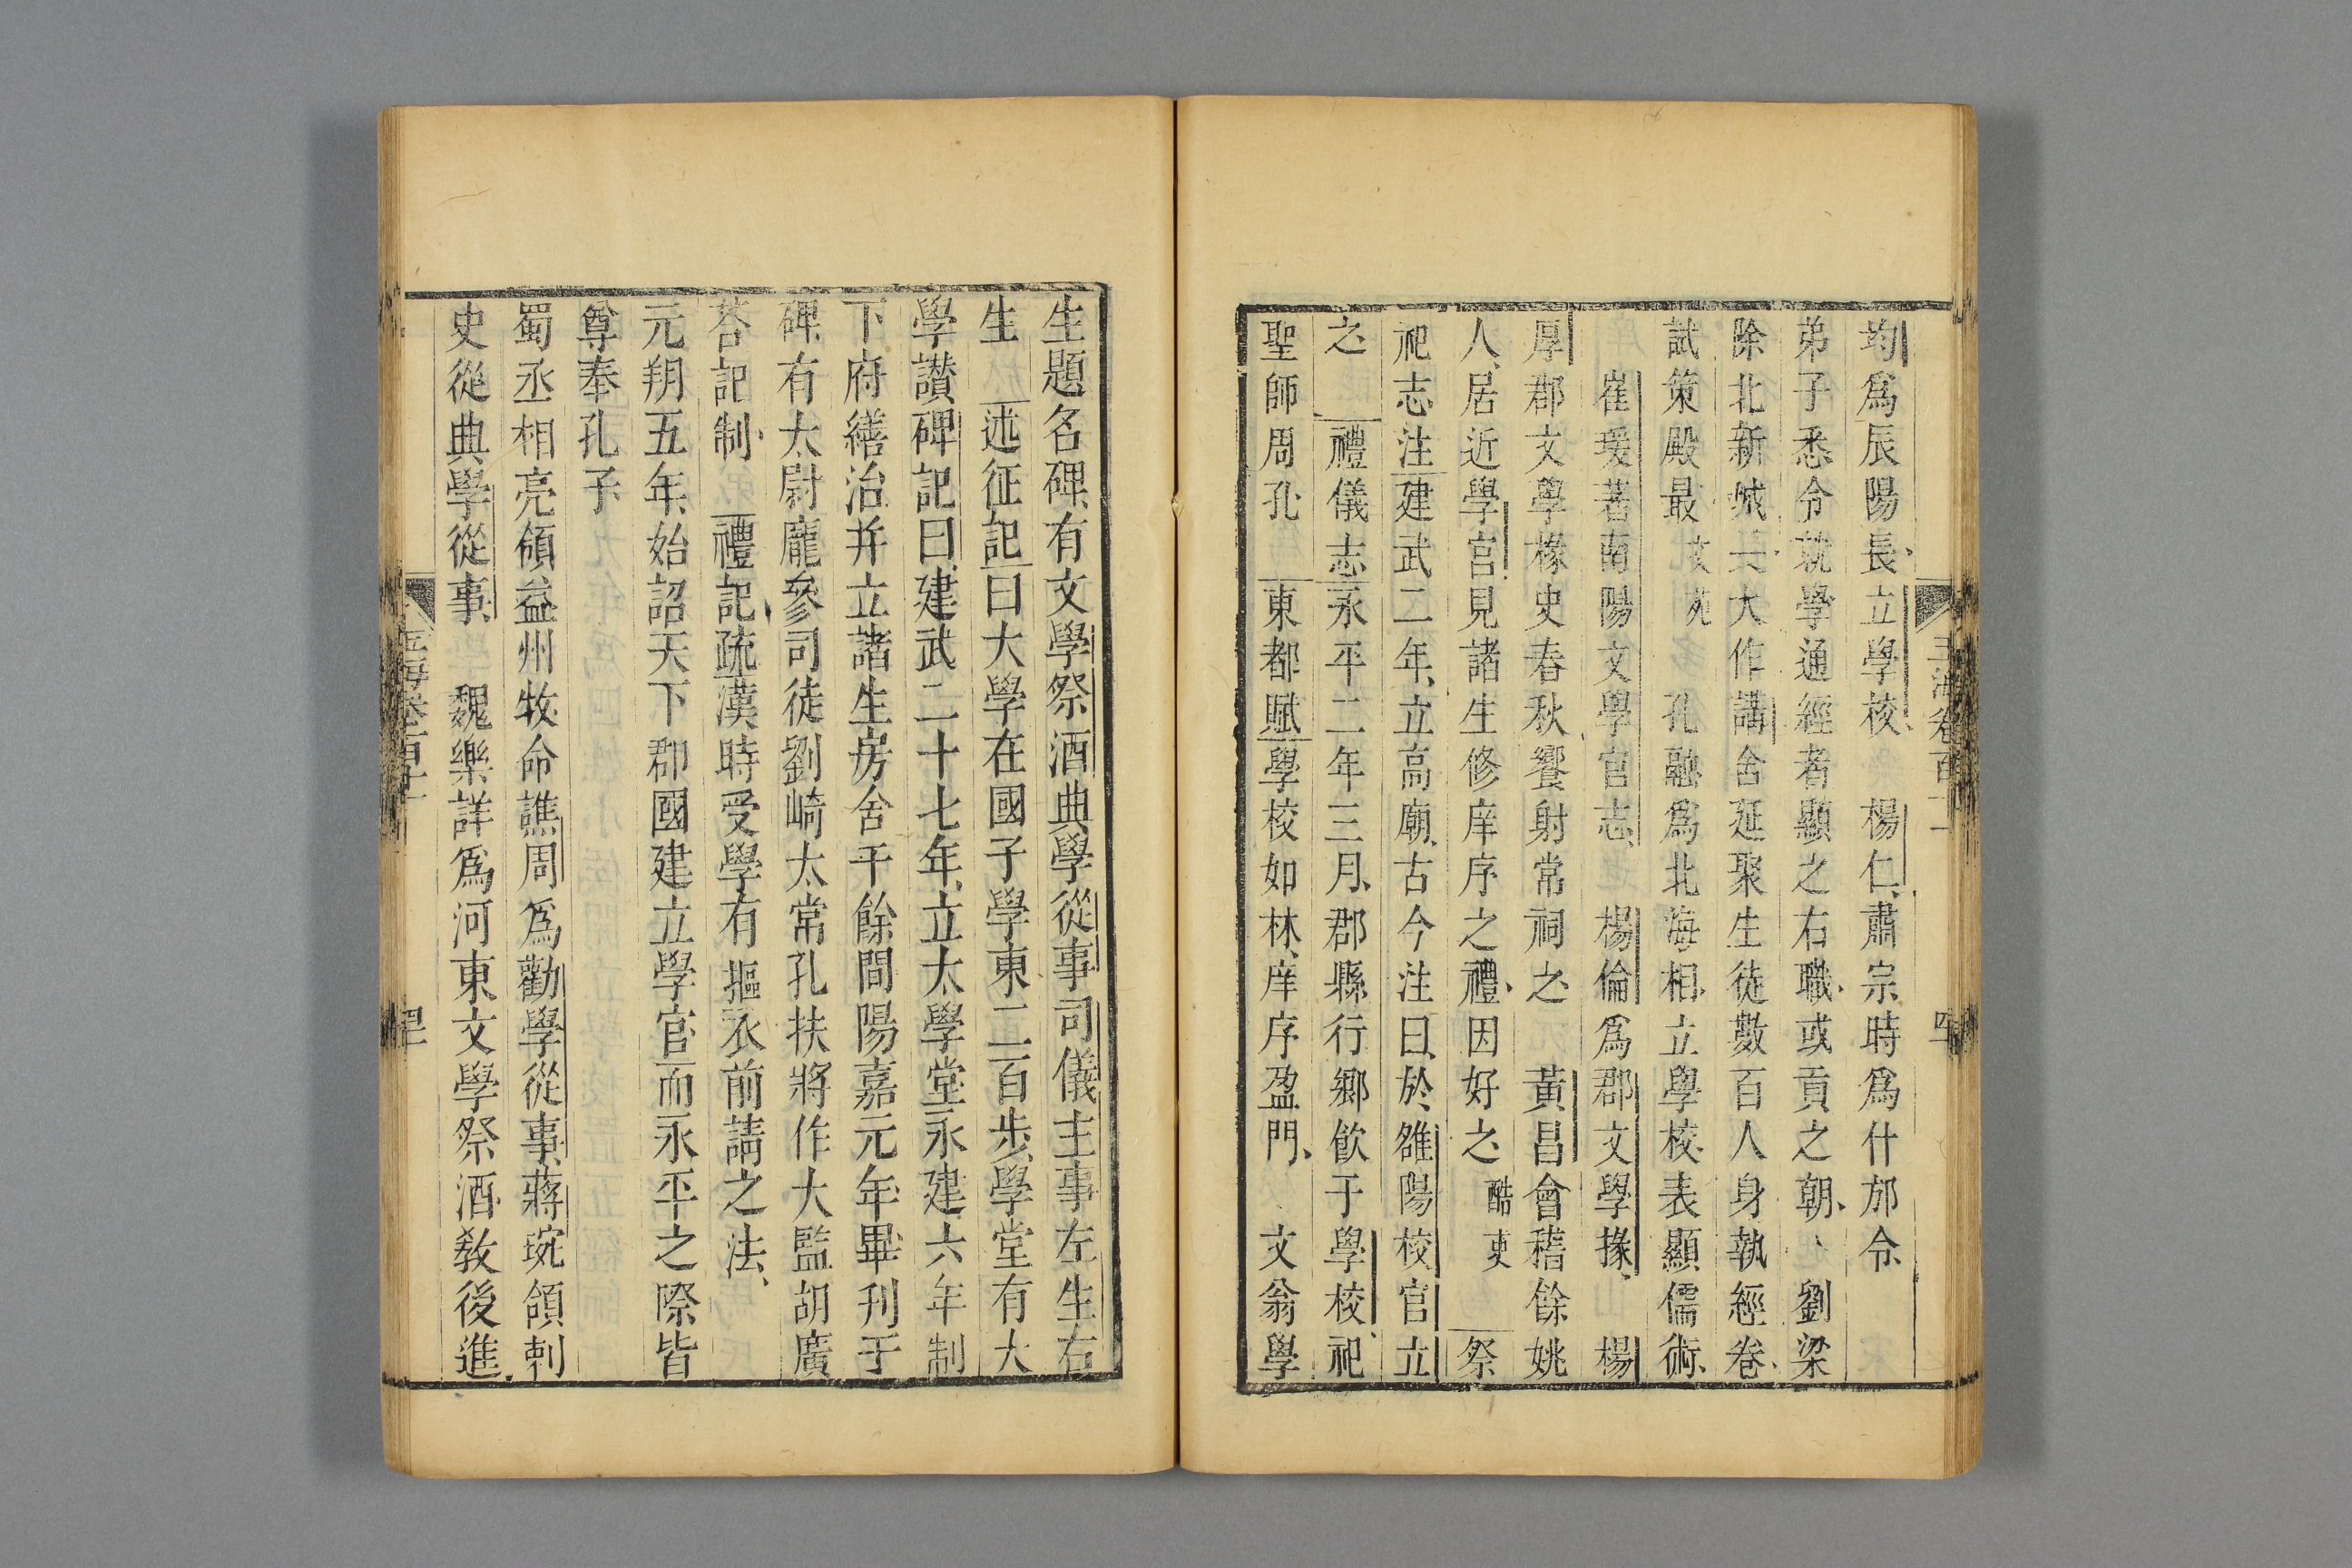 均爲辰陽長立學校 楊仁肅宗時爲什邡令
弟子悉令就學通經者顯之右職或貢之朝 劉梁
除北新城長大作講舍延聚生徒數百人身執經卷
試策殿最文苑 孔融爲北海相立學校表顯儒術
崔瑗著南陽文學官志 楊倫爲郡文學掾 楊
厚郡文學掾史春秋饗射常祠之 黃昌會稽餘姚
人居近學官見諸生修庠序之禮因好之酷吏 祭
祀志注建武二年立高廟古今注曰於雒陽校官立
之 禮儀志永平二年三月郡縣行鄉飮于學校祀
聖師周孔 東都賦學校如林庠序盈門 文翁學
玉海卷百十一 四
生題名碑有文學祭酒典學從事司儀主事左生右
生 述征記曰大學在國子學東二百步學堂有大
學讃碑記曰建武二十七年立太學堂永建六年制
下府繕治并立諸生房舍千餘間陽嘉元年畢刊于
碑有太尉龐參司徒劉崎太常孔扶將作大監胡廣
荅記制 禮記疏漢時受學有摳衣前請之法
元朔五年始詔天下郡國建立學官而永平之際皆
尊奉孔子
蜀丞相亮領益州牧命譙周爲勸學從事蔣琬領刺
史從典學從事 魏樂詳爲河東文學祭酒敎後進
玉海卷百十一